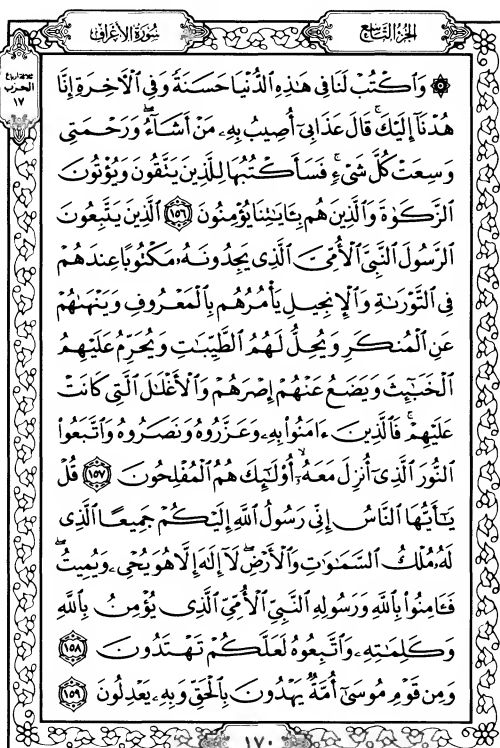 سُورَةُ الأَعۡرَافِ
الجُزءُ التَّاسِعُ
ثلاثة أرباع
الحزب
١٧
۞ وَٱكۡتُبۡ لَنَا فِي هَٰذِهِ ٱلدُّنۡيَا حَسَنَةٗ وَفِي ٱلۡأٓخِرَةِ إِنَّا
هُدۡنَآ إِلَيۡكَۚ قَالَ عَذَابِيٓ أُصِيبُ بِهِۦ مَنۡ أَشَآءُۖ وَرَحۡمَتِي
وَسِعَتۡ كُلَّ شَيۡءٖۚ فَسَأَكۡتُبُهَا لِلَّذِينَ يَتَّقُونَ وَيُؤۡتُونَ
ٱلزَّكَوٰةَ وَٱلَّذِينَ هُم بِـَٔايَٰتِنَا يُؤۡمِنُونَ ١٥٦ ٱلَّذِينَ يَتَّبِعُونَ
ٱلرَّسُولَ ٱلنَّبِيَّ ٱلۡأُمِّيَّ ٱلَّذِي يَجِدُونَهُۥ مَكۡتُوبًا عِندَهُمۡ
فِي ٱلتَّوۡرَىٰةِ وَٱلۡإِنجِيلِ يَأۡمُرُهُم بِٱلۡمَعۡرُوفِ وَيَنۡهَىٰهُمۡ
عَنِ ٱلۡمُنكَرِ وَيُحِلُّ لَهُمُ ٱلطَّيِّبَٰتِ وَيُحَرِّمُ عَلَيۡهِمُ
ٱلۡخَبَٰٓئِثَ وَيَضَعُ عَنۡهُمۡ إِصۡرَهُمۡ وَٱلۡأَغۡلَٰلَ ٱلَّتِي كَانَتۡ
عَلَيۡهِمۡۚ فَٱلَّذِينَ ءَامَنُواْ بِهِۦ وَعَزَّرُوهُ وَنَصَرُوهُ وَٱتَّبَعُواْ
ٱلنُّورَ ٱلَّذِيٓ أُنزِلَ مَعَهُۥٓۙ أُوْلَٰٓئِكَ هُمُ ٱلۡمُفۡلِحُونَ ١٥٧ قُلۡ
يَٰٓأَيُّهَا ٱلنَّاسُ إِنِّي رَسُولُ ٱللَّهِ إِلَيۡكُمۡ جَمِيعًا ٱلَّذِي
لَهُۥ مُلۡكُ ٱلسَّمَٰوَٰتِ وَٱلۡأَرۡضِۖ لَآ إِلَٰهَ إِلَّا هُوَ يُحۡيِۦ وَيُمِيتُۖ
فَـَٔامِنُواْ بِٱللَّهِ وَرَسُولِهِ ٱلنَّبِيِّ ٱلۡأُمِّيِّ ٱلَّذِي يُؤۡمِنُ بِٱللَّهِ
وَكَلِمَٰتِهِۦ وَٱتَّبِعُوهُ لَعَلَّكُمۡ تَهۡتَدُونَ ١٥٨
وَمِن قَوۡمِ مُوسَىٰٓ أُمَّةٞ يَهۡدُونَ بِٱلۡحَقِّ وَبِهِۦ يَعۡدِلُونَ ١٥٩
١٧٠